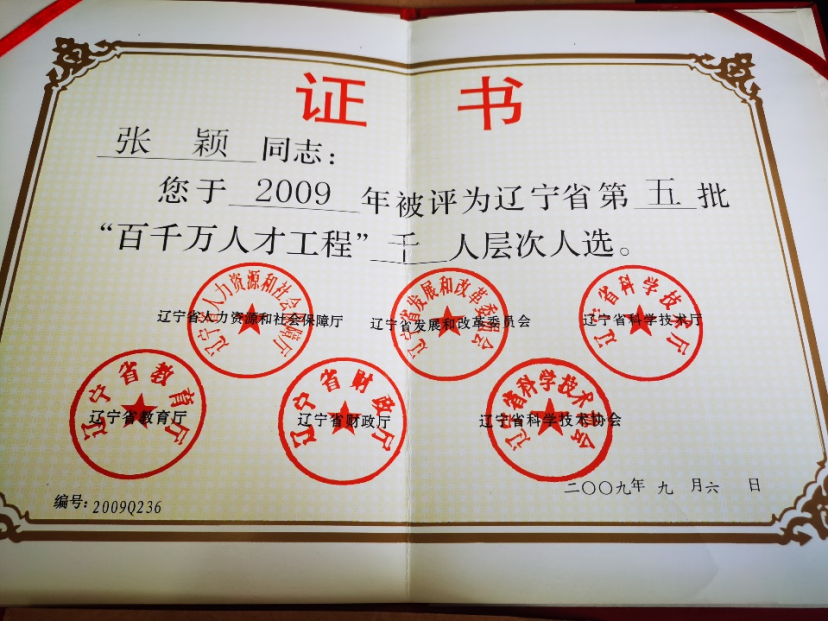 证 书
张 颖 同志：
您于 2009 年被评为辽宁省第 五 批
“百千万人才工程” 千 人层次人选。
辽宁省人力资源和社会保障厅 辽宁省发展和改革委员会 辽宁省科学技术厅
辽宁省人力资源和社会保障厅
辽宁省发展和改革委员会
辽宁省科学技术厅
辽宁省教育厅 辽宁省财政厅 辽宁省科学技术协会
辽宁省教育厅
辽宁省财政厅
辽宁省科学技术协会
编号：2009Q236
二〇〇九年 九 月 六 日